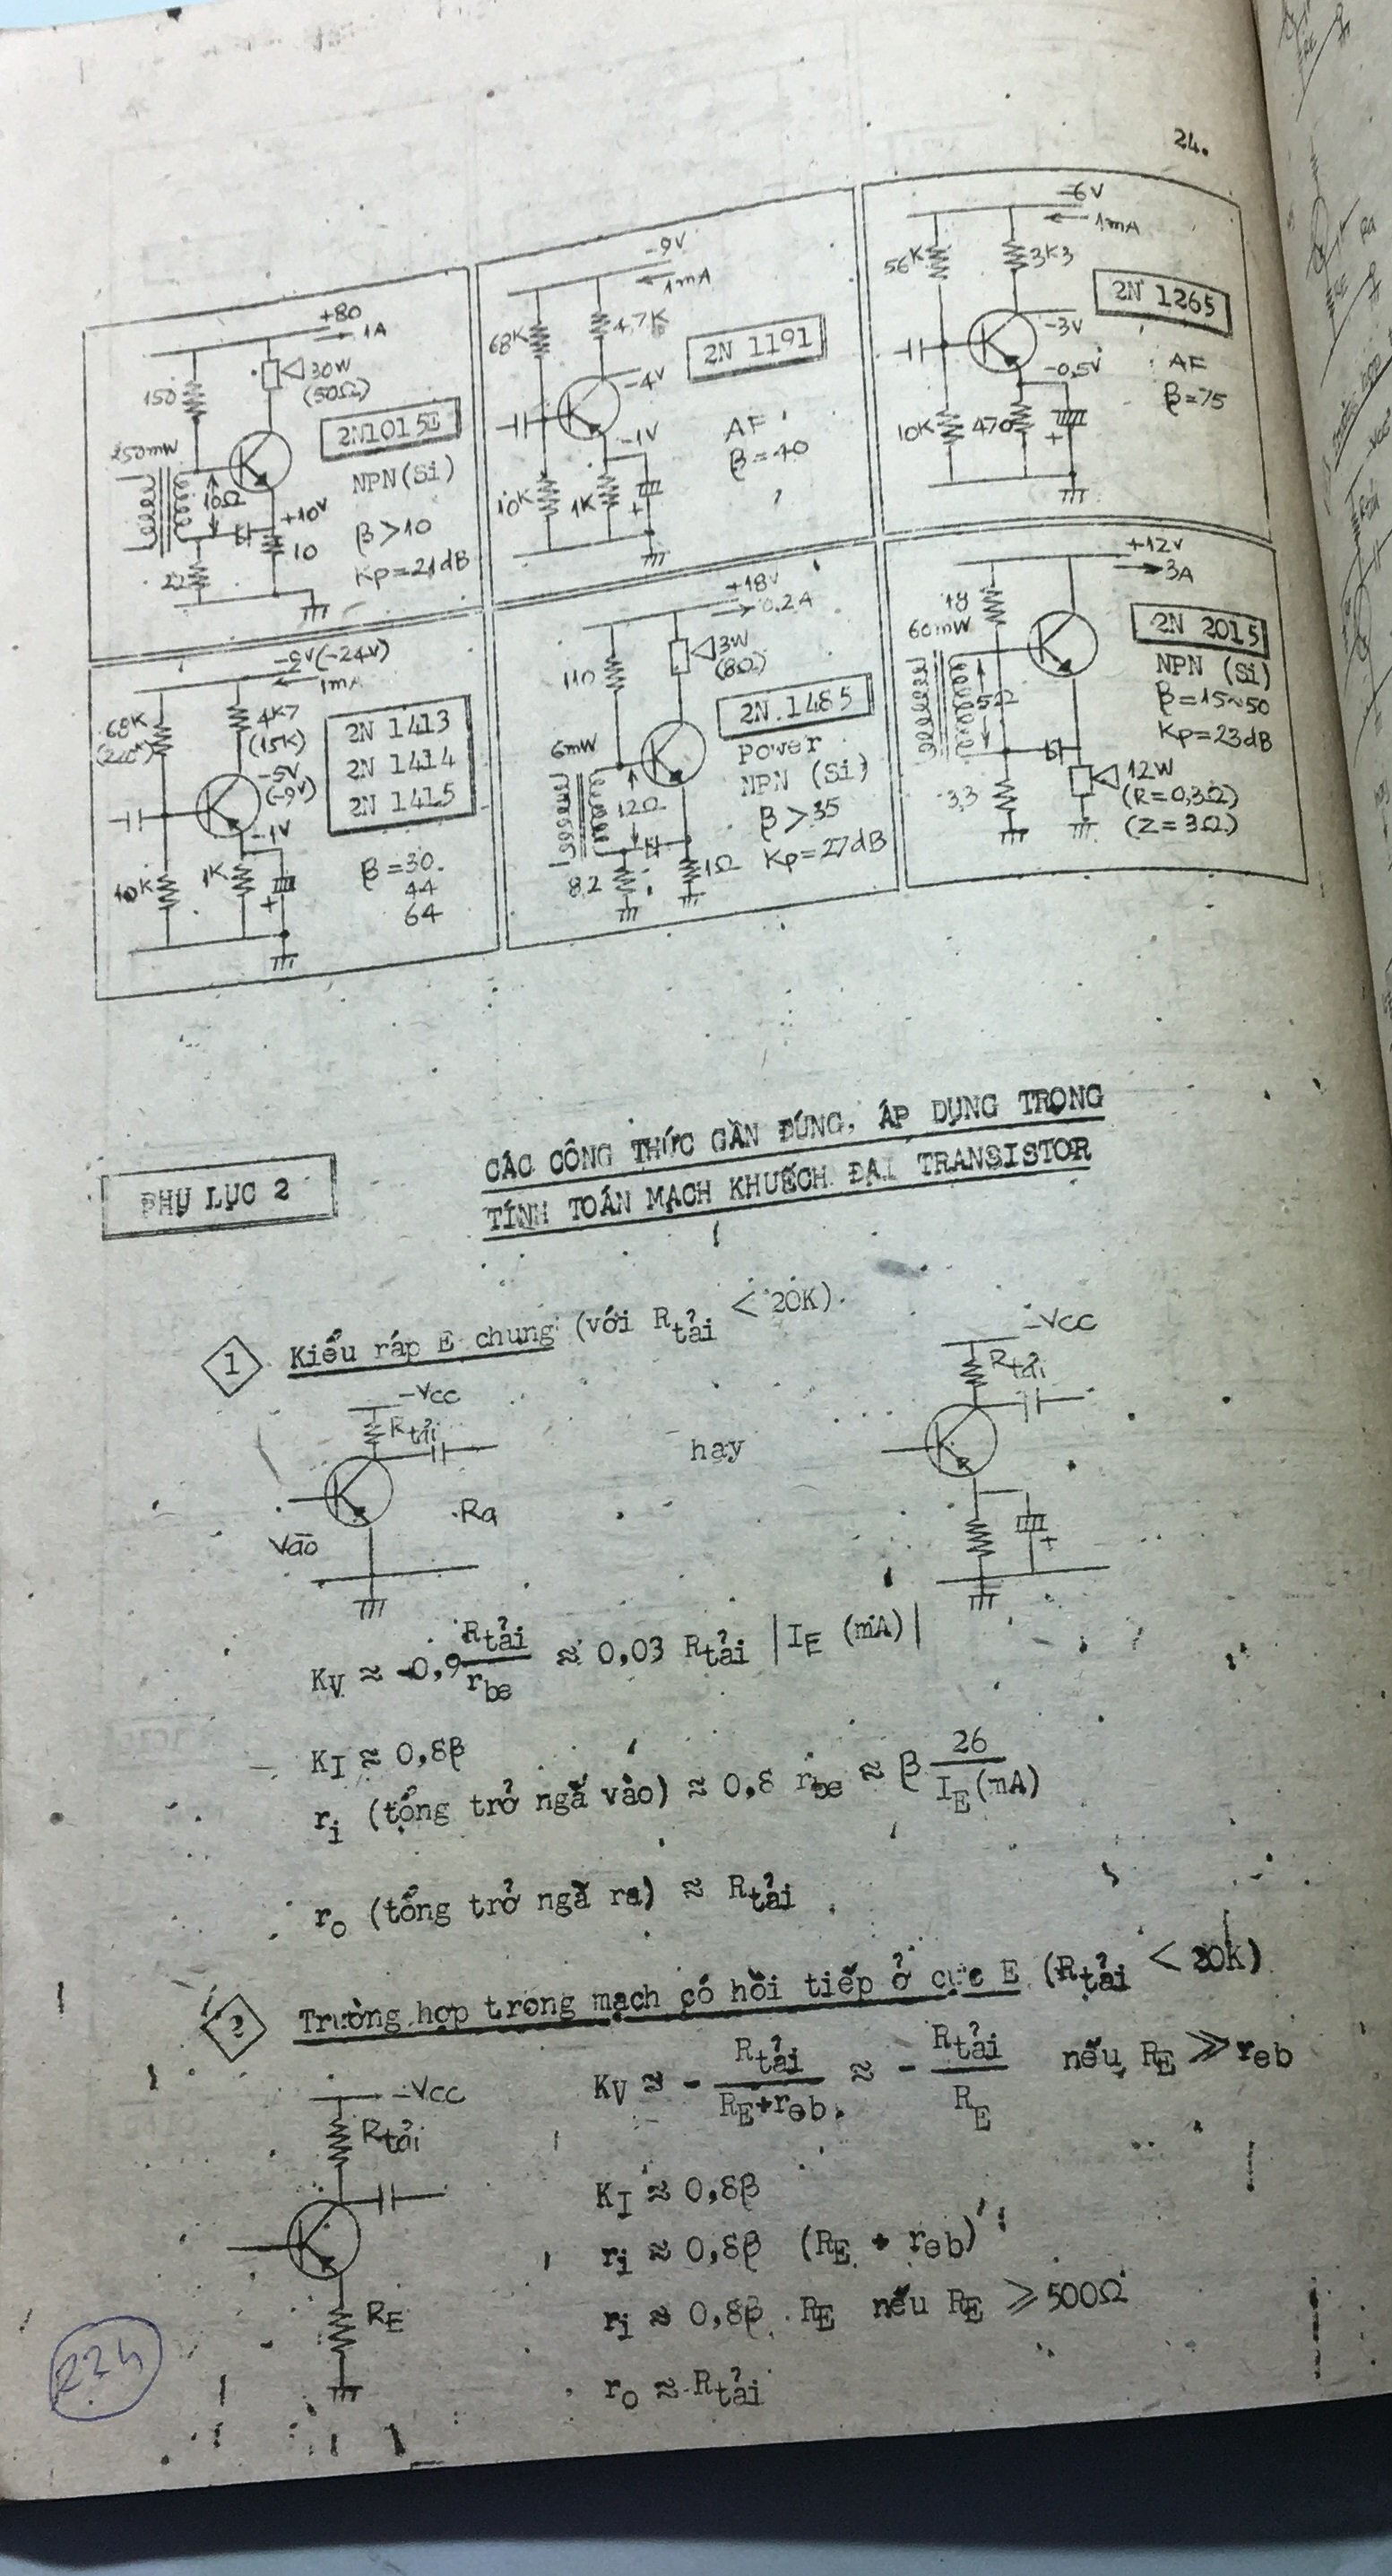 24.
+80
1A
150
30W
(50Ω)
2N1015E
250mW
10Ω
NPN(Si)
+10V
10
β>10
Kp=21dB
22
-9V
1mA
68K
4,7K
2N 1191
-4V
-1V
AF
β=40
10K
1K
-6V
1mA
56K
3K3
2N 1265
-3V
-0,5V
AF
β=75
10K
470
-9V(-24V)
1mA
68K
(240K)
4K7
(15K)
2N 1413
2N 1414
2N 1415
-5V
(-9V)
-1V
10K
1K
β=30.
44
64
+18V
0,2A
110
3W
(8Ω)
2N.1485
6mW
Power
NPN (Si)
12Ω
β>35
Kp=27dB
8,2
1Ω
+12V
3A
18
60mW
2N 2015
NPN (Si)
β=15~50
Kp=23dB
5Ω
12W
(R=0,3Ω)
(Z=3Ω)
3,3
PHỤ LỤC 2
CÁC CÔNG THỨC GẦN ĐÚNG, ÁP DỤNG TRONG
TÍNH TOÁN MẠCH KHUẾCH ĐẠI TRANSISTOR
1 Kiểu ráp E chung (với Rtải < 20K).
-VCC
Rtải
Ra
Vào
hay
-VCC
Rtải
KV ≈ -0,9 Rtải/rbe ≈ 0,03 Rtải |IE (mA)|
KI ≈ 0,8β
ri (tổng trở ngã vào) ≈ 0,8 rbe ≈ β 26/IE(mA)
ro (tổng trở ngã ra) ≈ Rtải
2 Trường hợp trong mạch có hồi tiếp ở cực E (Rtải < 20K)
-VCC
Rtải
RE
KV ≈ - Rtải/RE+reb. ≈ - Rtải/RE nếu RE ≫ reb
KI ≈ 0,8β
ri ≈ 0,8β (RE + reb)
ri ≈ 0,8β . RE nếu RE ⩾ 500Ω
ro ≈ Rtải
224